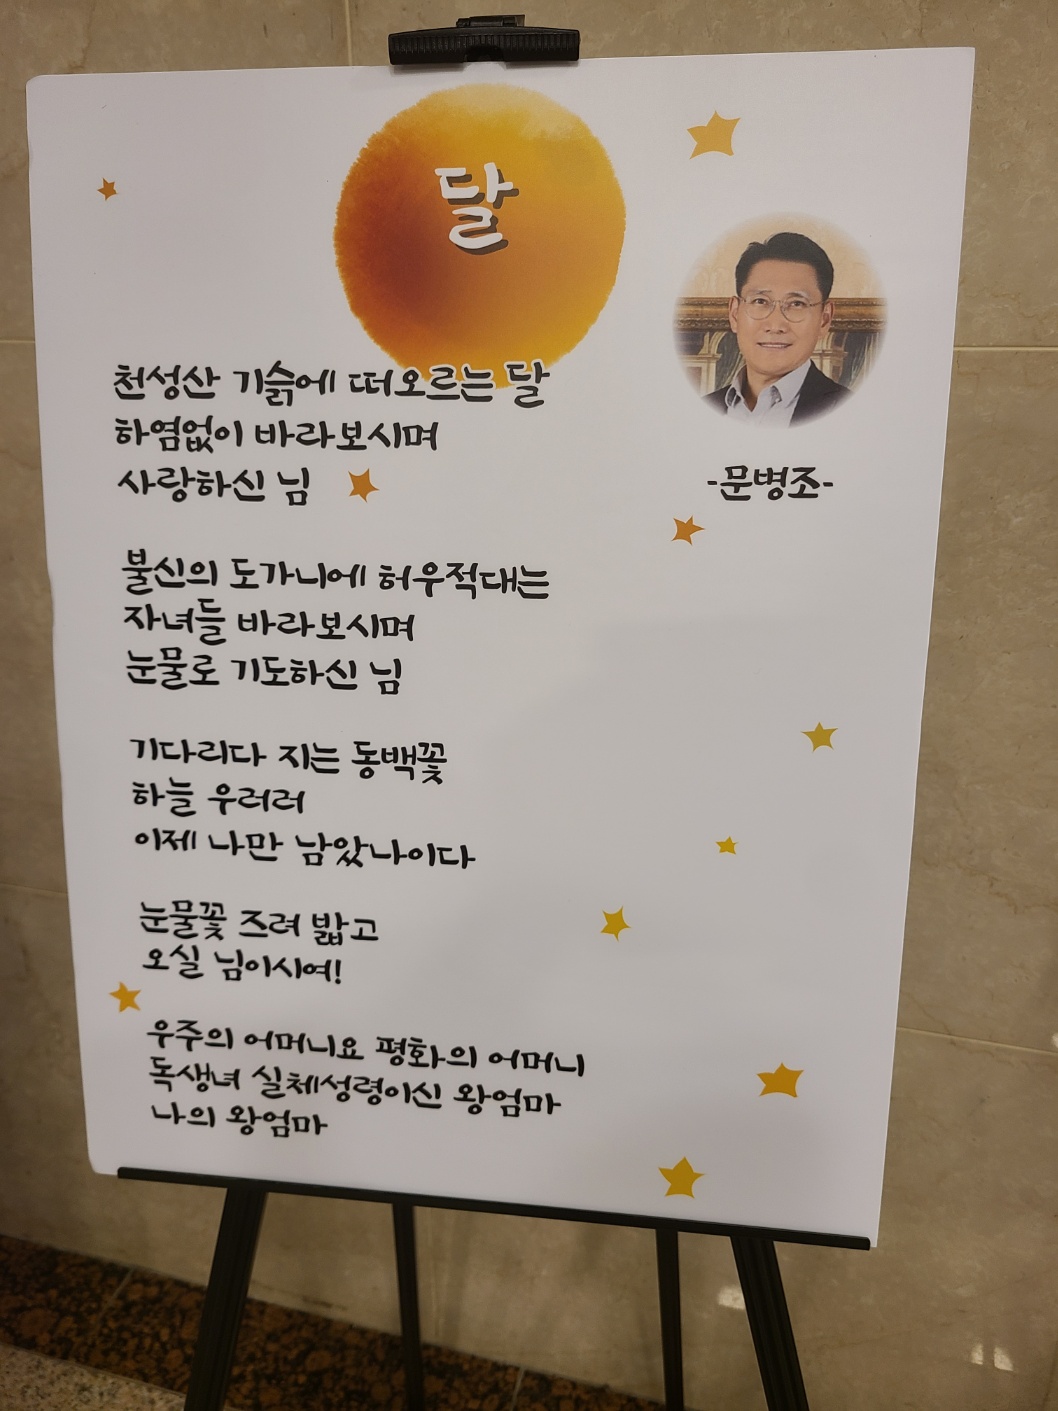 달
천성산 기슭에 떠오르는 달
하염없이 바라보시며
사랑하신 님
-문병조-
불신의 도가니에 허우적대는
자녀들 바라보시며
눈물로 기도하신 님
기다리다 지는 동백꽃
하늘 우러러
이제 나만 남았나이다
눈물꽃 즈려 밟고
오실 님이시여!
우주의 어머니요 평화의 어머니
독생녀 실체성령이신 왕엄마
나의 왕엄마